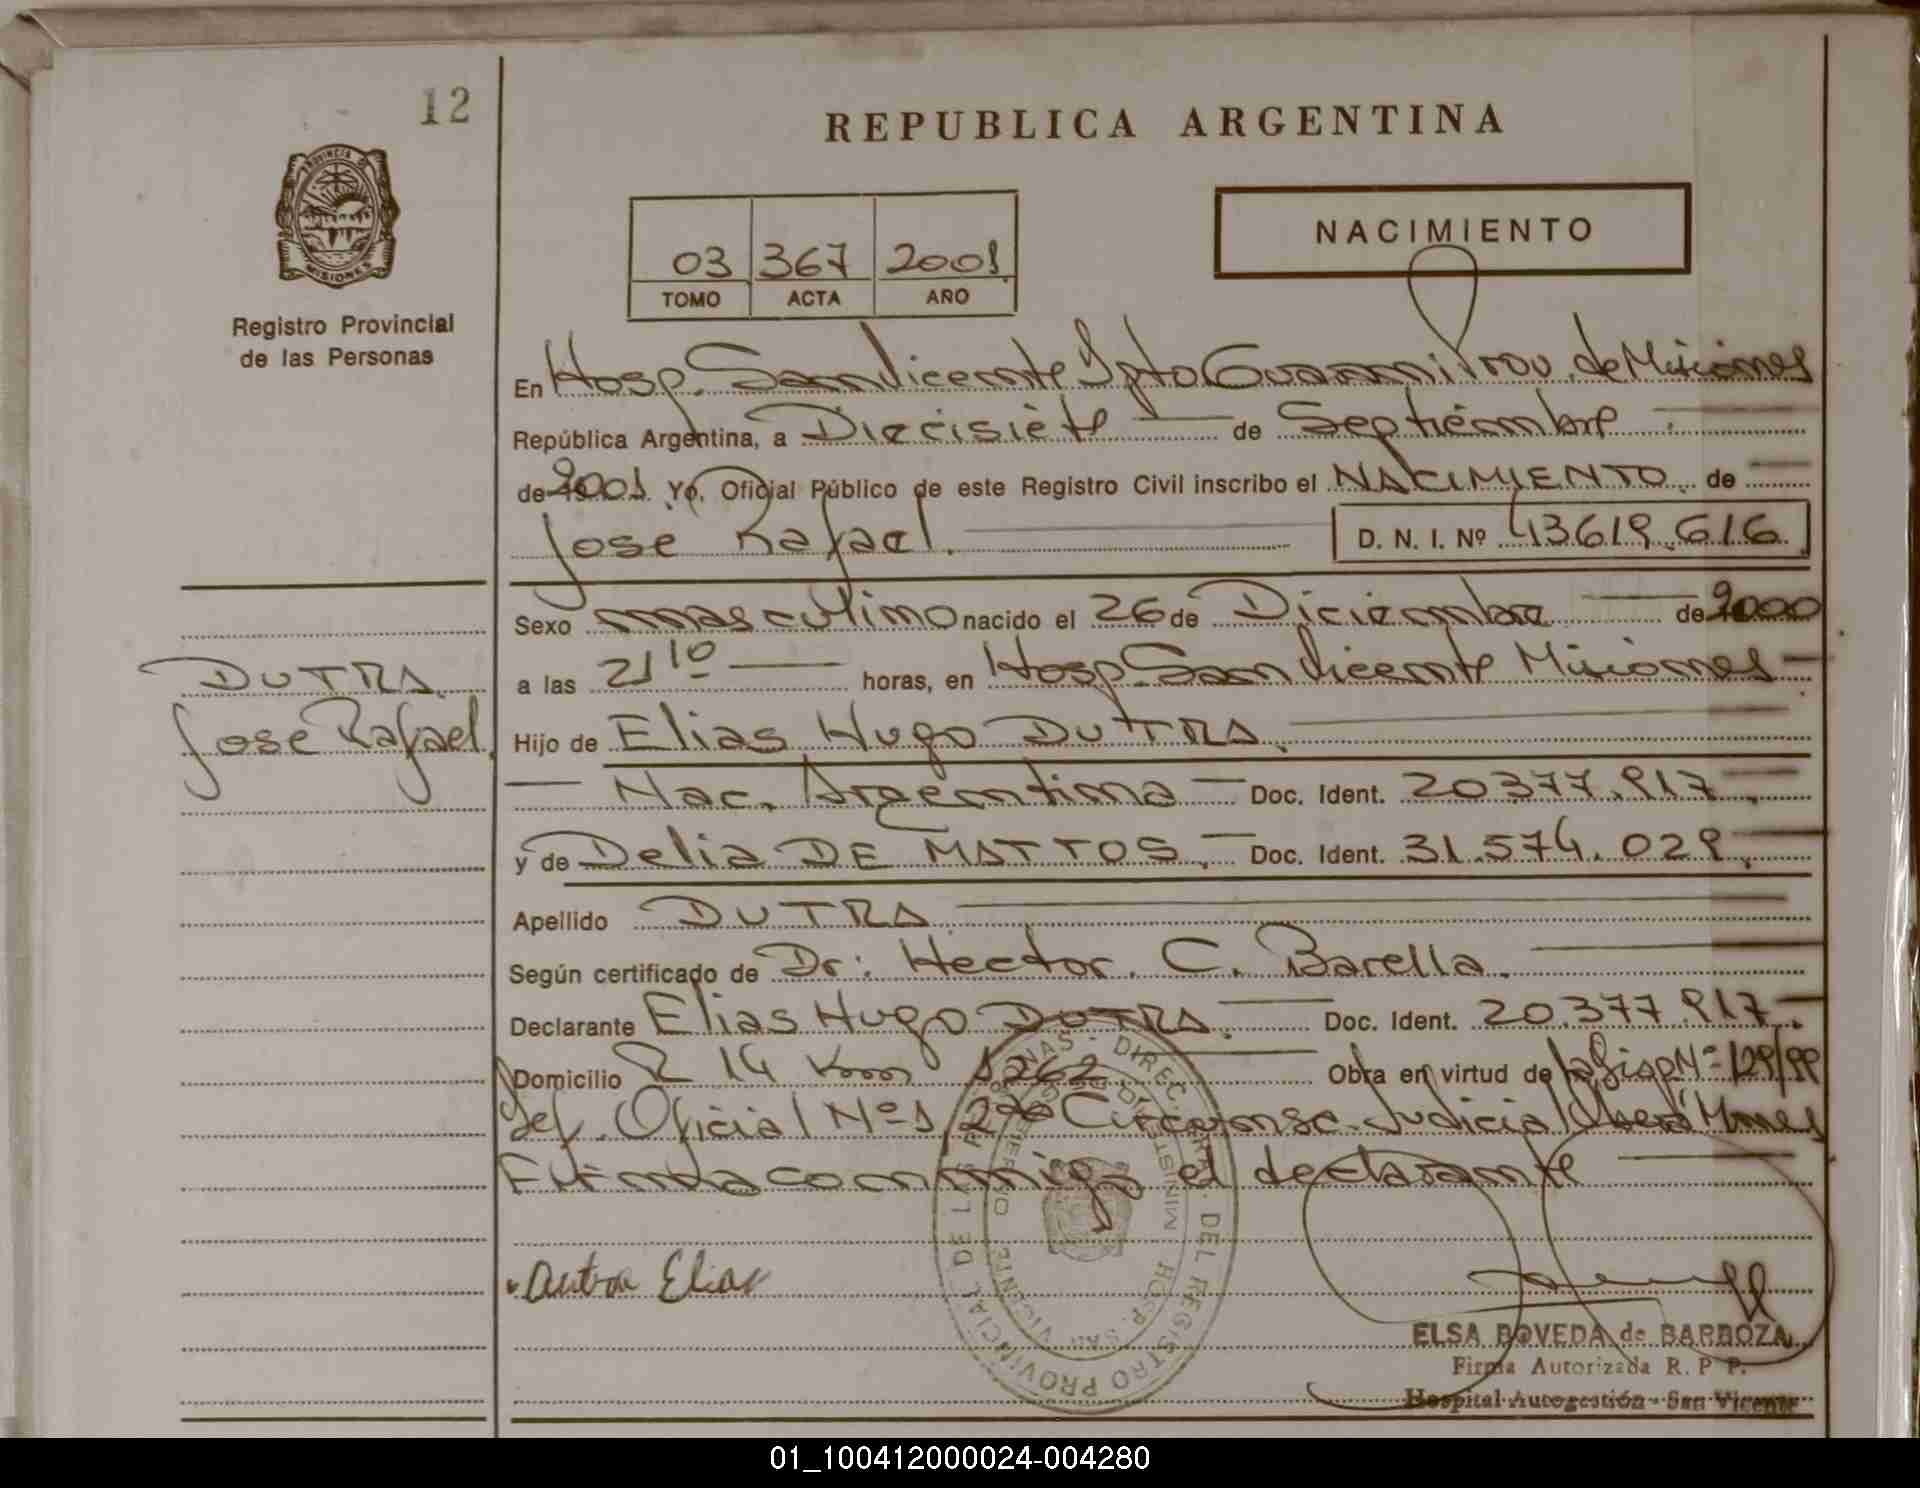 12
REPUBLICA ARGENTINA
PROVINCIA DE
MISIONES
Registro Provincial
de las Personas
03 367 2001
TOMO ACTA AÑO
NACIMIENTO
En Hosp. San Vicente Dpto Guarani Prov. de Misiones
República Argentina, a Diecisiete de Septiembre
de 2001. Yo, Oficial Público de este Registro Civil inscribo el NACIMIENTO de
José Rafael. D. N. I. Nº 43.619.616
Sexo masculino nacido el 26 de Diciembre de 2000
a las 21 10 horas, en Hosp. San Vicente Misiones
DUTRA
José Rafael.
Hijo de Elias Hugo DUTRA.
Nac. Argentina Doc. Ident. 20.377.917.
y de Delia DE MATTOS. Doc. Ident. 31.574.029.
Apellido DUTRA
Según certificado de Dr: Hector. C. Barella.
Declarante Elias Hugo DUTRA. Doc. Ident. 20.377.917.
Domicilio R 14 Km 1262 Obra en virtud de la Disp Nº 129/99
Def. Oficial Nº 1, 2da Circunsc. Judicial Oberá Mnes
Firma conmigo el declarante
Dutra Elias
DIREC. GRAL. DEL REGISTRO PROVINCIAL DE LAS PERSONAS
HOSP. SAN VICENTE
ELSA BOVEDA de BARBOZA
Firma Autorizada R. P. P.
Hospital Autogestión - San Vicente
01_100412000024-004280